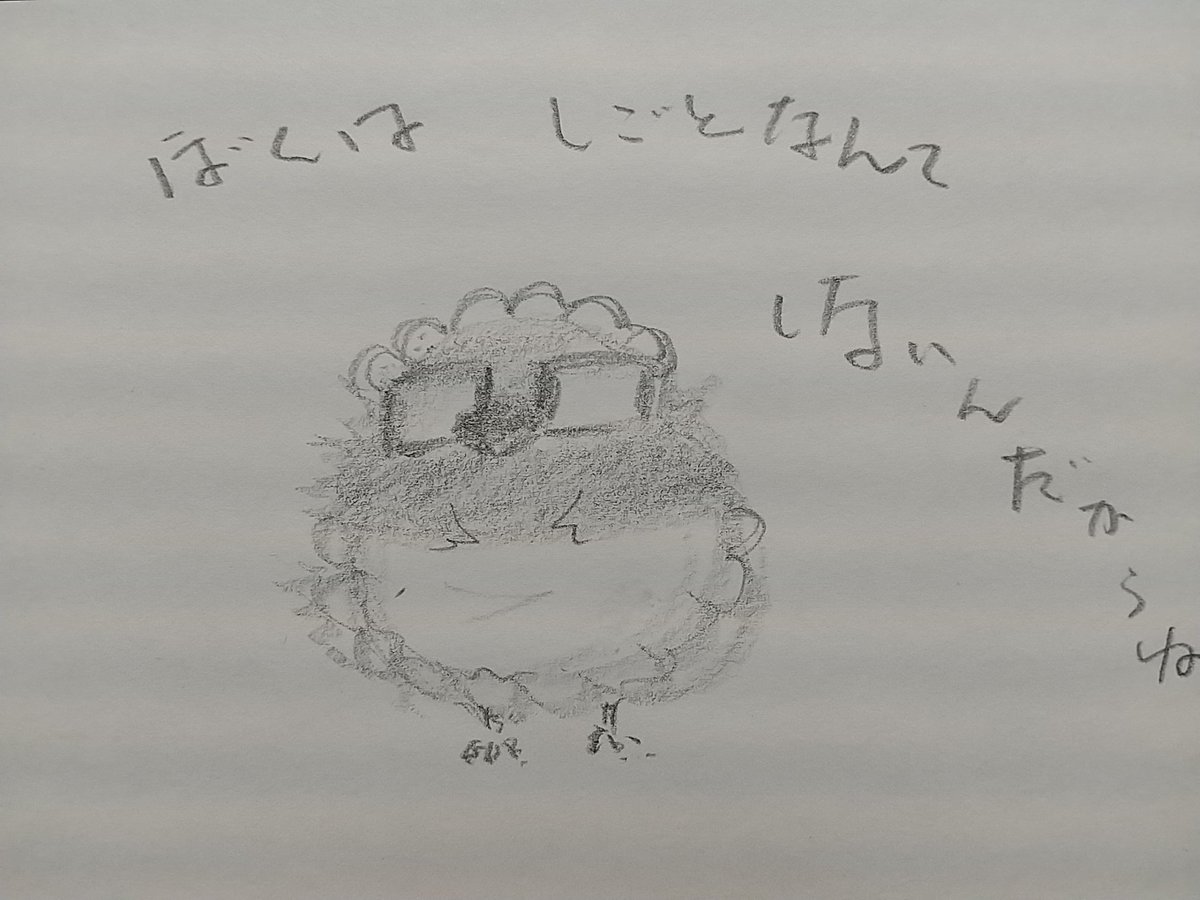 ぼくは しごとなんて
しないんだからね